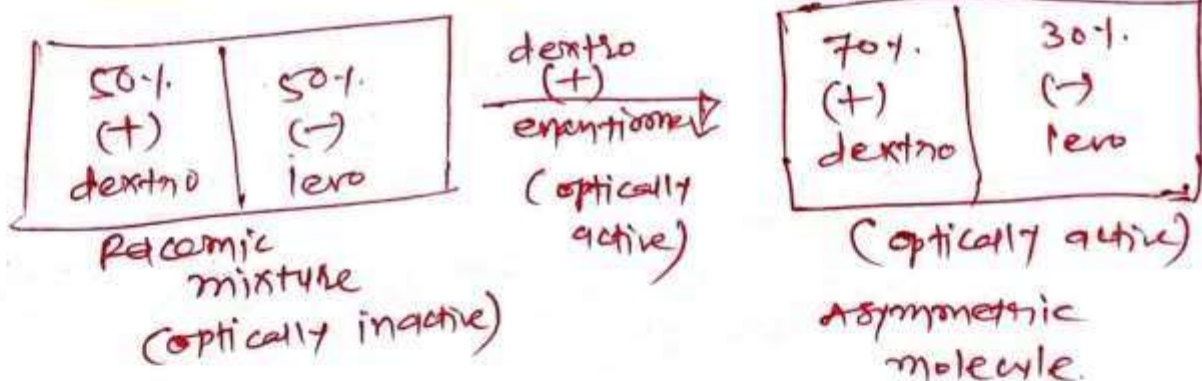 50%.
(+)
dextro
50%.
(-)
levo
Racemic
mixture
(optically inactive)
dextro
(+)
enantiomer
(optically
active)
70%.
(+)
dextro
30%.
(-)
levo
(optically active)
Asymmetric
molecule.